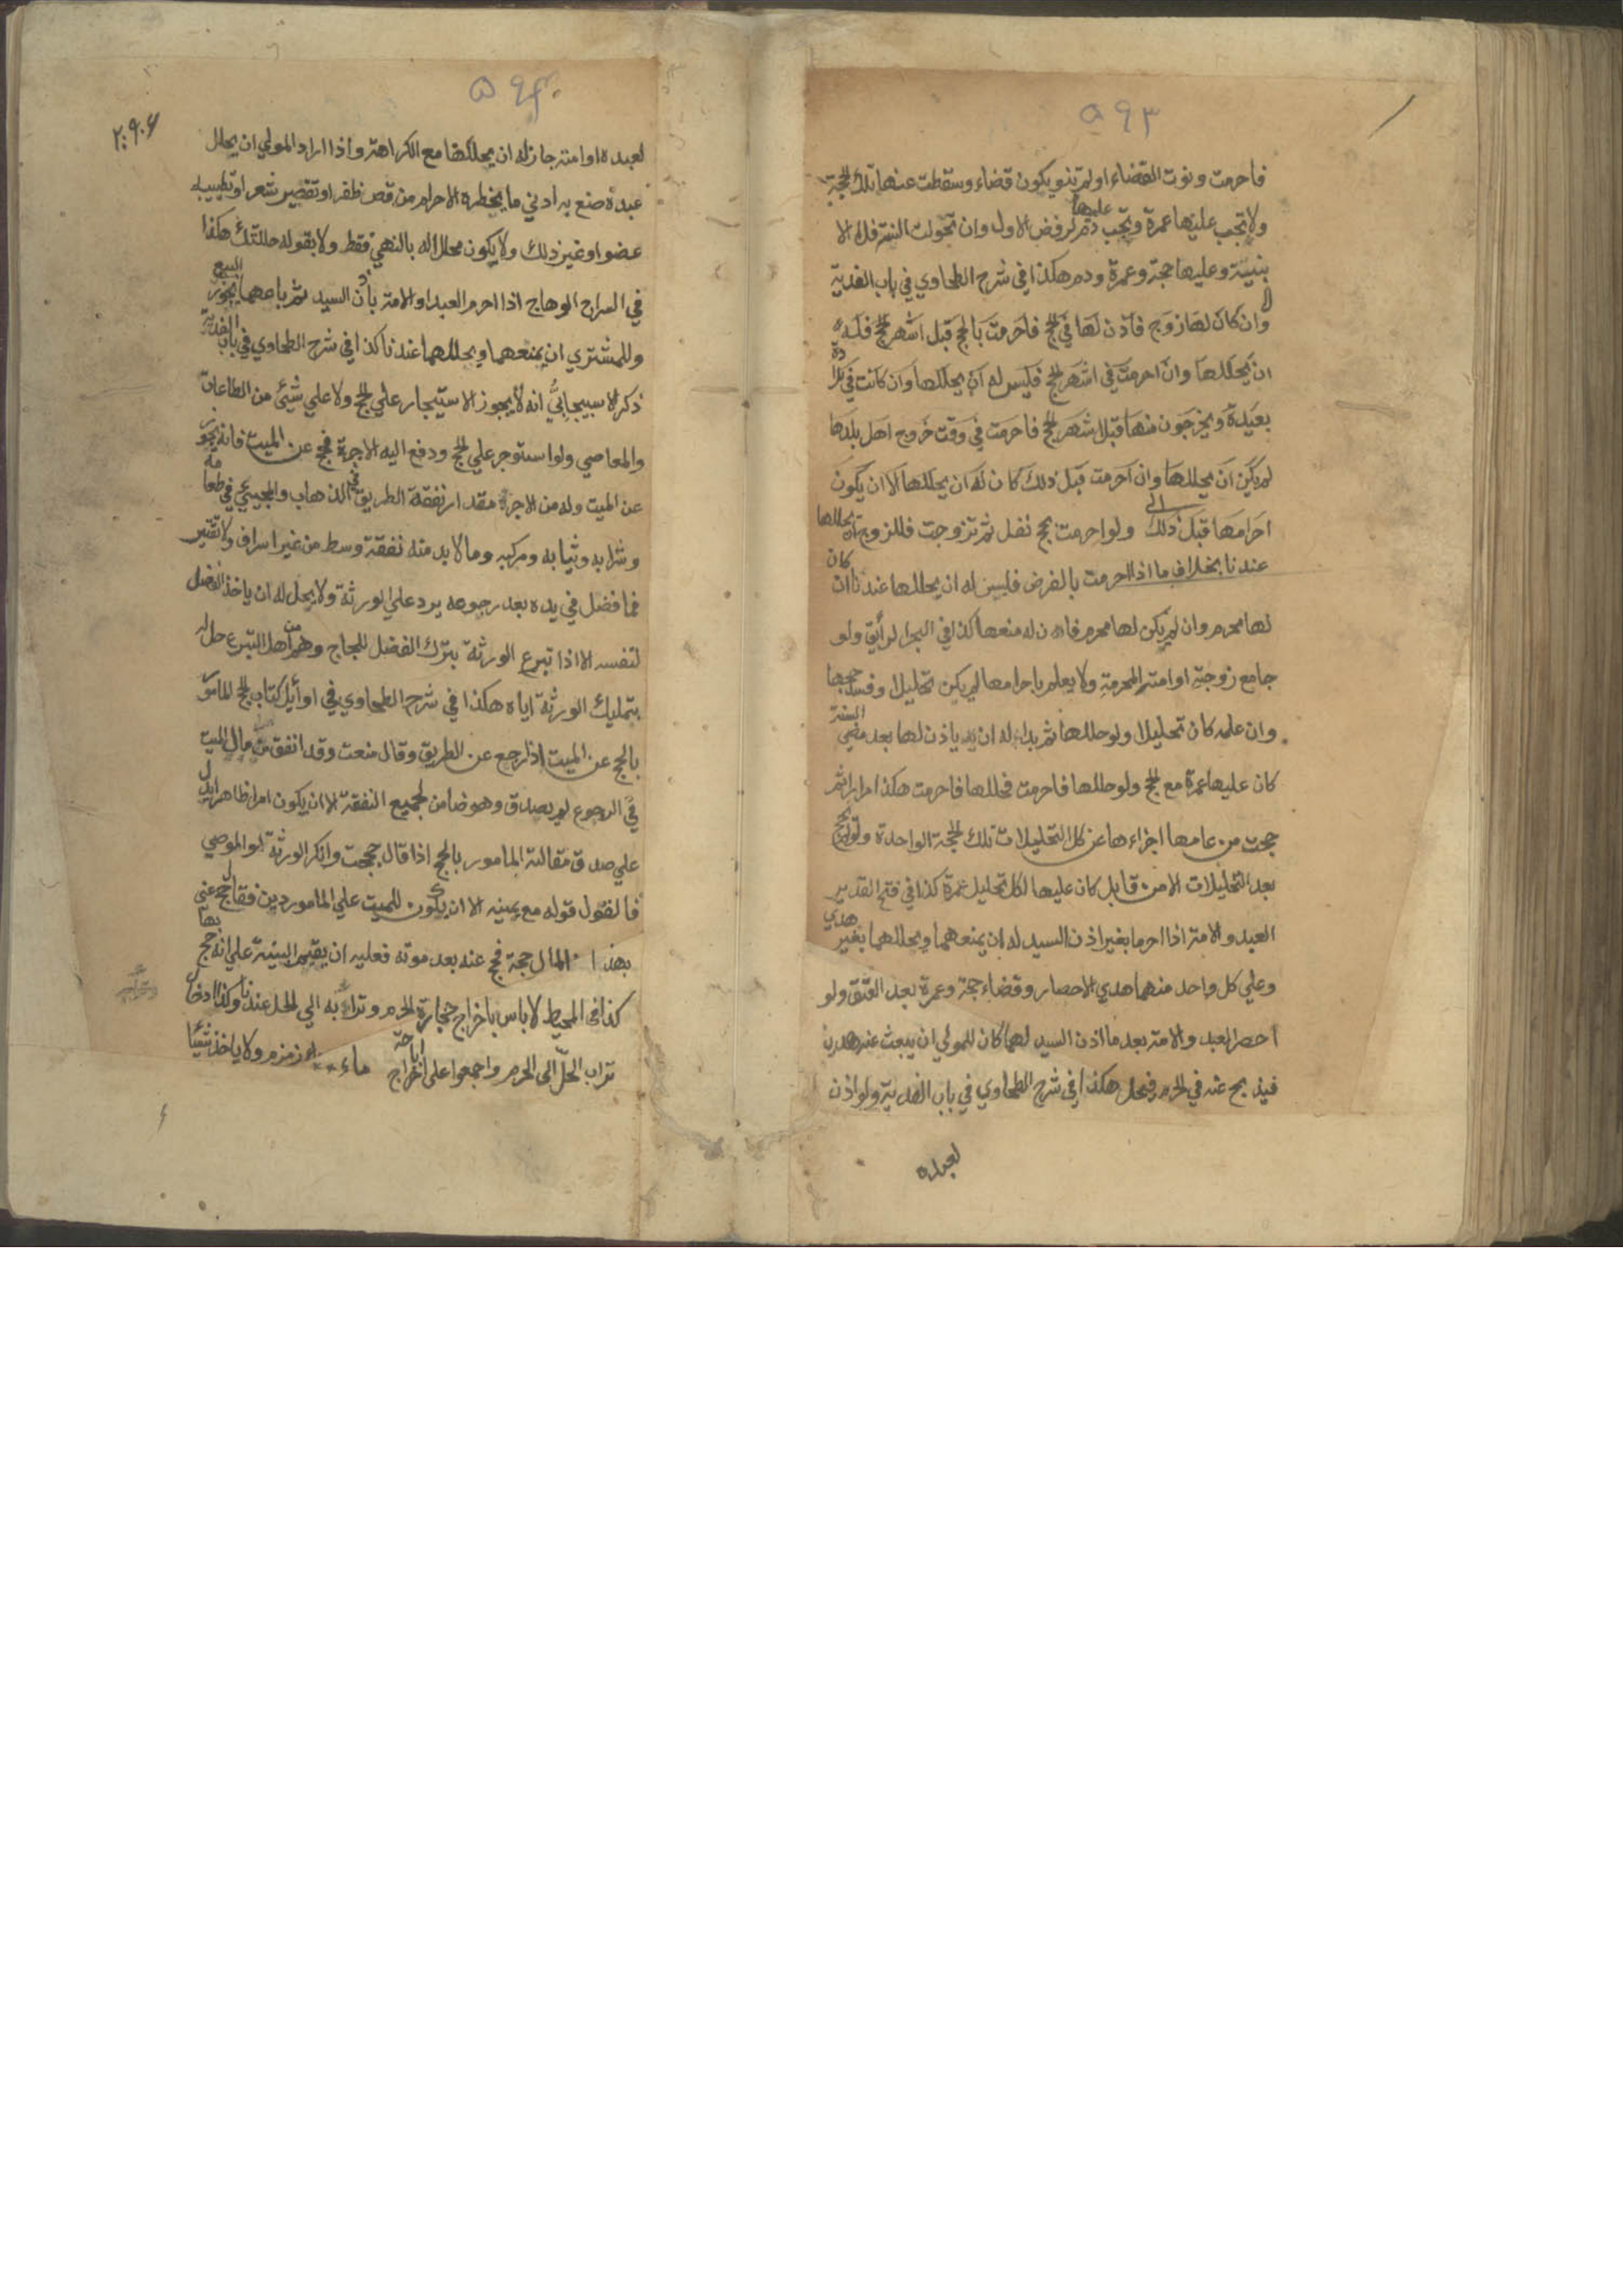 ۵۹۳
فاحرمت ونوت القضاء او لم تنو يكون قضاء وسقطت عنها تلك الحجة
ولا تجب عليها عمرة ويجب عليها دم لرفض الاول وان تحولت السنة فلا الا
بنية وعليها حجة وعمرة ودم هكذا في شرح الطحاوي في باب الفدية
وان كان لها زوج فاذن لها في الحج فاحرمت بالحج قبل اشهر الحج فله
ان يحللها وان احرمت في اشهر الحج فليس له ان يحللها وان كانت في بلاد
بعيدة ويخرجون منها قبل اشهر الحج فاحرمت في وقت خروج اهل بلدها
لم يكن ان يحللها وان احرمت قبل ذلك كان له ان يحللها الا ان يكون
احرامها قبل ذلك ولو احرمت بحج نفل ثم تزوجت فللزوج ان يحللها
عندنا بخلاف ما اذا احرمت بالفرض فليس له ان يحللها عندنا ان كان
لها محرم وان لم يكن لها محرم فان له منعها كذا في البحر الرائق ولو
جامع زوجته او امته المحرمة ولا يعلم باحرامها لم يكن تحليلا وفسد حجها
وان علمه كان تحليلا ولو حللها ثم بدا له ان ياذن لها بعد مضي السنة
كان عليها عمرة مع الحج ولو حللها فاحرمت فحللها فاحرمت هكذا مرارا ثم
حجت من عامها اجزاءها عن كل التحليلات تلك الحجة الواحدة ولو لم تحج
بعد التحليلات الا من قابل كان عليها لكل تحليل عمرة كذا في فتح القدير
العبد والامة اذا احرما بغير اذن السيد له ان يمنعهما ويحللهما بغير هدي
وعلي كل واحد منهما هدي الاحصار وقضاء حجة وعمرة بعد العتق ولو
احصر العبد والامة بعد ما اذن السيد لهما كان للمولي ان يبعث عنه هديا
فيذبح عنه في الحرم فيحل هكذا في شرح الطحاوي في باب الفدية ولو اذن
لعبده
۵۹۴
لعبده او امته جاز له ان يحللهما مع الكراهة واذا اراد المولي ان يحلل
عبده صنع به ادني ما يحظره الاحرام من قص ظفر او تقصير شعر او تطييب
عضو او غير ذلك ولا يكون محللا له بالنهي فقط ولا بقوله حللتك هكذا
في السراج الوهاج اذا احرم العبد او الامة باذن السيد ثم باعهما يجوز البيع
وللمشتري ان يمنعهما ويحللهما عندنا كذا في شرح الطحاوي في باب الفدية
ذكر الاسبيجابي انه لا يجوز الاستيجار علي الحج ولا علي شئ من الطاعات
والمعاصي ولو استوجر علي الحج ودفع اليه الاجرة فحج عن الميت فانه يجوز
عن الميت وله من الاجرة مقدار نفقة الطريق في الذهاب والمجيئ في طعامه
وشرابه وثيابه ومركبه وما لا بد منه نفقة وسط من غير اسراف ولا تقتير
فما فضل في يده بعد رجوعه يرد علي الورثة ولا يحل له ان ياخذ الفضل
لنفسه الا اذا تبرع الورثة بترك الفضل للحاج وهم من اهل التبرع حل له
بتمليك الورثة اياه هكذا في شرح الطحاوي في اوائل كتاب الحج المامور
بالحج عن الميت اذا رجع عن الطريق وقال منعت وقد انفق من مال الميت
في الرجوع لم يصدق وهو ضامن لجميع النفقة الا ان يكون امرا ظاهرا يدل
علي صدق مقالته المامور بالحج اذا قال حججت وانكر الورثة او الموصي
فالقول قوله مع يمينه الا ان يكون للميت علي المامور دين فقال حج عني
بهذا المال حجة فحج عنه بعد موته فعليه ان يقيم البينة علي انه حج بها
كذا في المحيط لا باس باخراج حجارة الحرم وترابه الي الحل عندنا وكذا ادخال
تراب الحل الى الحرم واجمعوا على اباحة اخراج ماء زمزم ولا ياخذ شيئا